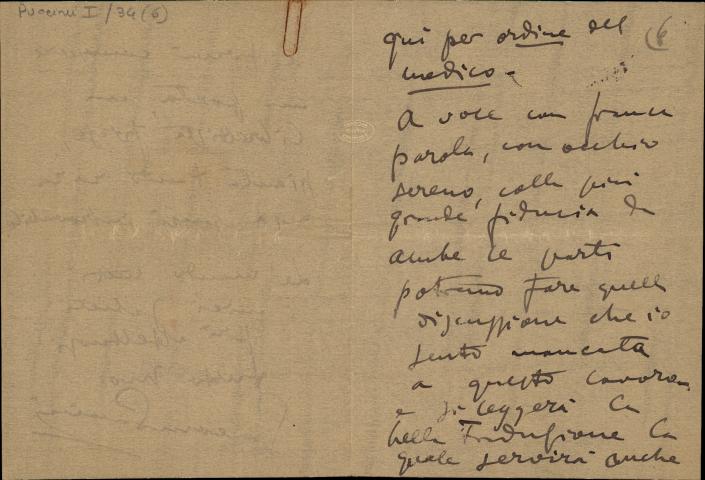 Puccini I/34(6)
6
qui per ordine del
medico -
A voce con franca
parola, con occhio
sereno, colla più
grande fiducia da
ambe le parti
potremo fare quella
discussione che io
sento mancata
a questo lavoro
e si leggerà la
bella traduzione la
quale servirà anche